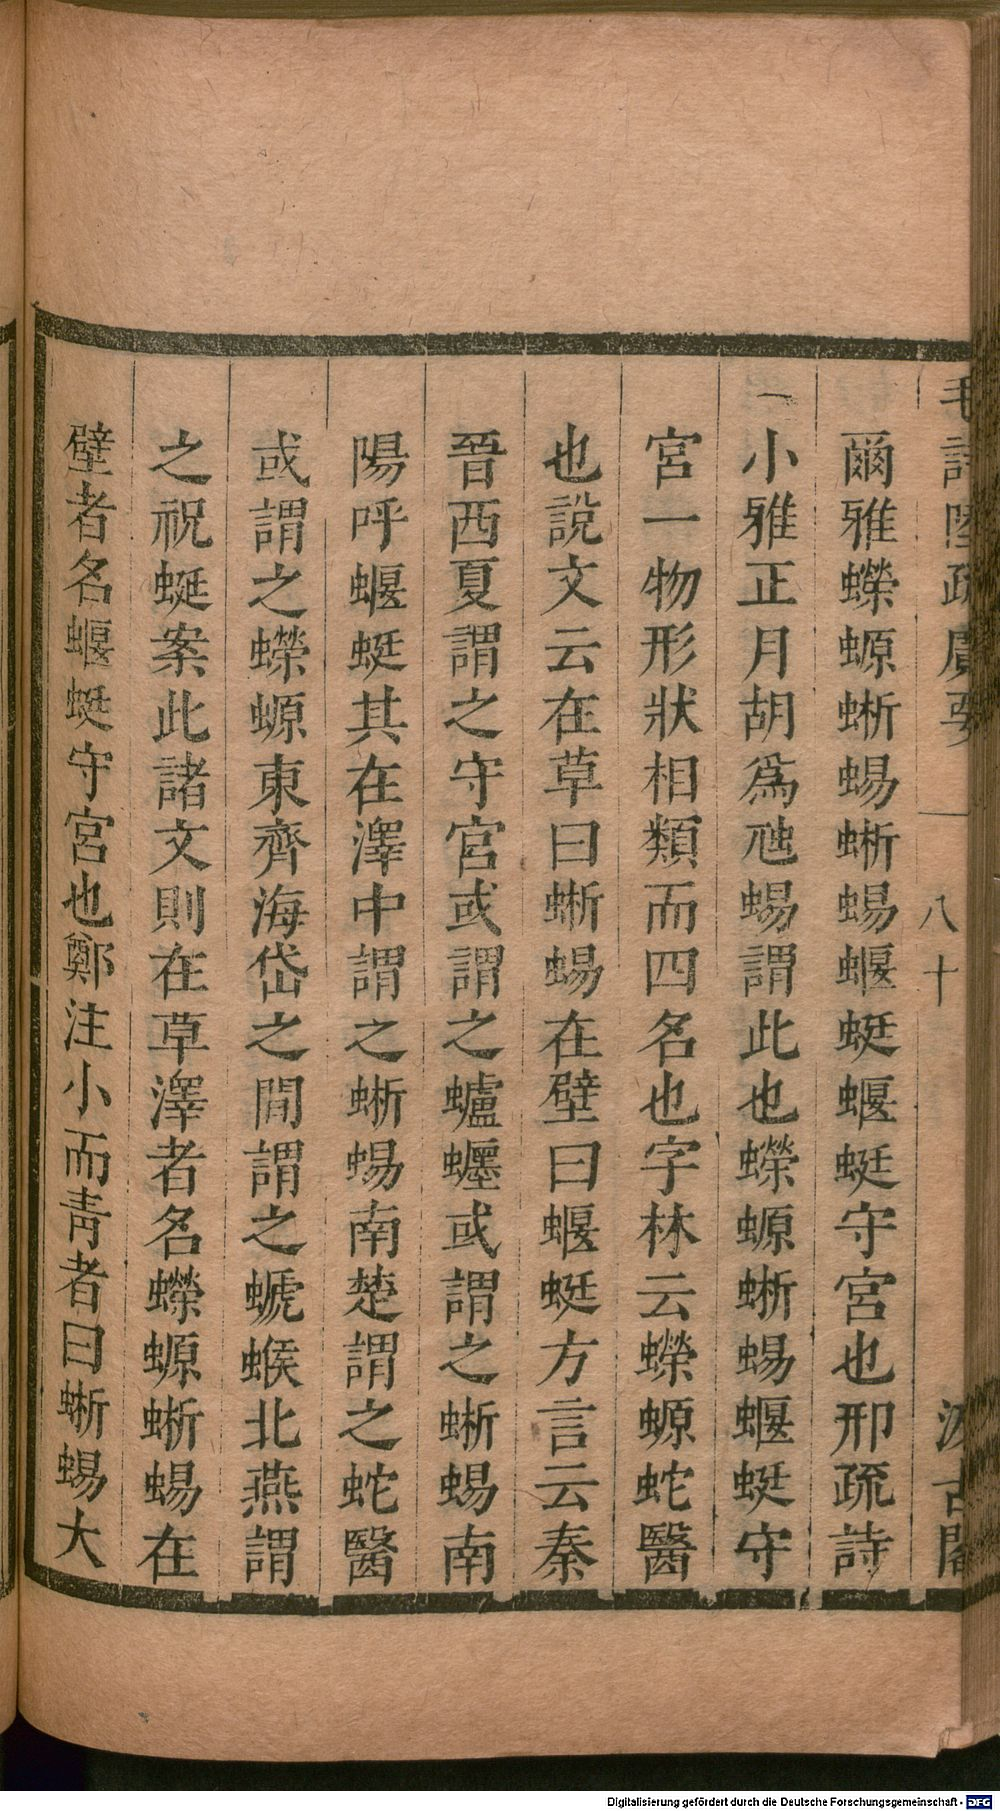 毛詩陸疏廣要 八十 汲古閣
爾雅蠑螈蜥蜴蜥蜴蝘蜓蝘蜓守宮也邢疏詩
小雅正月胡爲虺蜴謂此也蠑螈蜥蜴蝘蜓守
宮一物形狀相類而四名也字林云蠑螈蛇醫
也說文云在草曰蜥蜴在壁曰蝘蜓方言云秦
晉西夏謂之守宮或謂之蠦𧔞或謂之蜥蜴南
陽呼蝘蜓其在澤中謂之蜥蜴南楚謂之蛇醫
或謂之蠑螈東齊海岱之間謂之螔䗔北燕謂
之祝蜒案此諸文則在草澤者名蠑螈蜥蜴在
壁者名蝘蜓守宮也鄭注小而青者曰蜥蜴大
Digitalisierung gefördert durch die Deutsche Forschungsgemeinschaft - DFG